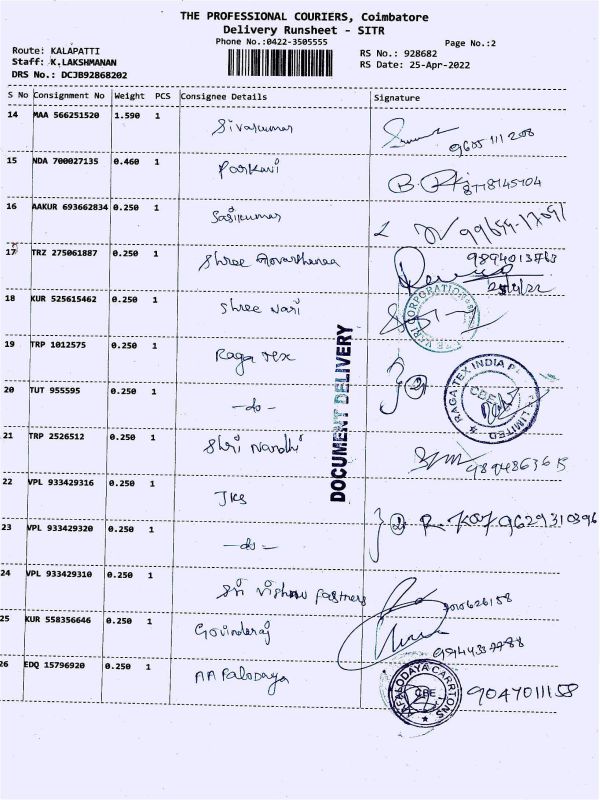 THE PROFESSIONAL COURIERS, Coimbatore
Delivery Runsheet - SITR
Phone No.:0422-3505555
Page No.:2
Route: KALAPATTI
Staff: K.LAKSHMANAN
DRS No.: DCJB92868202
RS No.: 928682
RS Date: 25-Apr-2022
S No Consignment No Weight PCS Consignee Details Signature
14 MAA 566251520 1.590 1 Sivakumar
15 NDA 700027135 0.460 1
16 AAKUR 693662834 0.250 1 Sasikumar
17 TRZ 275061887 0.250 1 Shree 9894013763
18 KUR 525615462 0.250 1 Shree Vari
19 TRP 1012575 0.250 1 Raga Tex
RAGA TEX INDIA LIMITED
CBE
20 TUT 955595 0.250 1 -do-
21 TRP 2526512 0.250 1 Shri Nandhi
22 VPL 933429316 0.250 1 JKS
23 VPL 933429320 0.250 1 -do-
24 VPL 933429310 0.250 1 Sri Vishnu
25 KUR 558356646 0.250 1 Govindaraj
26 EDQ 15796920 0.250 1 AA Palodaya 9047011158
CBE
DOCUMENT DELIVERY